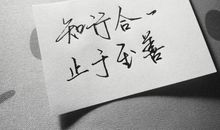 知行合一
止于至善